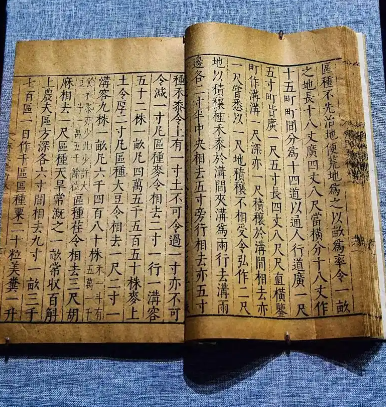 區種不先治地便荒地為之以畝為率令一畝
之地長十八丈廣四丈八尺當橫分十八丈作
十五町町間分為十四道以通人行道廣一尺
五寸町皆廣一尺五寸長四丈八尺尺直橫鑿
町作溝溝一尺深亦一尺積穰於溝間相去亦
一尺嘗悉以一尺地積穰不相受令弘作二尺
地以積穰種禾黍於溝間夾溝為兩行去溝兩
邊各二寸半中央相去五寸旁行相去亦五寸
種禾黍令上有一寸土不可令過一寸亦不可
令減一寸凡區種麥令相去二寸一行一溝容
五十二株一畝凡四萬五千五百五十株麥上
土令厚二寸凡區種大豆令相去一尺二寸一
溝容九株一畝凡六千四百八十株
區種荏令相去三尺胡
麻相去一尺區種天旱常溉之一畝常收百斛
上農夫區方深各六寸間相去九寸一畝三千
七百區一日作千區區種粟二十粒美糞一升